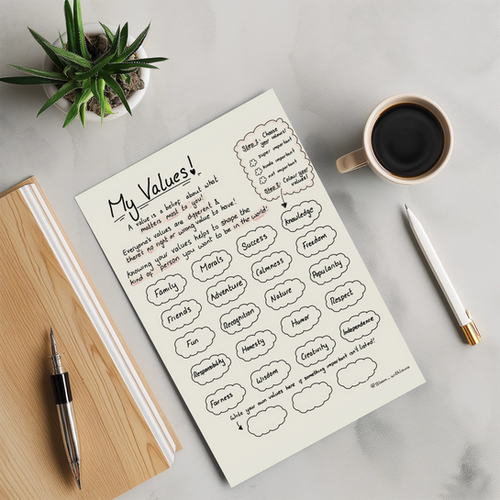 My Values!
A value is a belief about what
matters most to you!
Everyone's values are different &
there's no right or wrong value to have!
Knowing your values helps to shape the
kind of person you want to be in the world!
Step 1: Choose
your values!
super important
kinda important
not important
Step 2: Colour your
values!
Family
Morals
Success
Knowledge
Friends
Adventure
Calmness
Freedom
Fun
Recognition
Nature
Popularity
Responsibility
Honesty
Humor
Respect
Fairness
Wisdom
Creativity
Independence
Write your own values here if something important isn't listed!